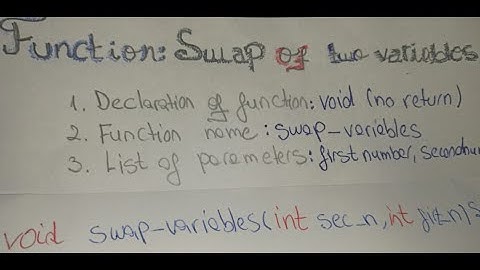 Function: Swap of two variables
1. Declaration of function: void (no return)
2. Function name: swap-variables
3. List of parameters: first number,
void swap-variables(int sec_n, int